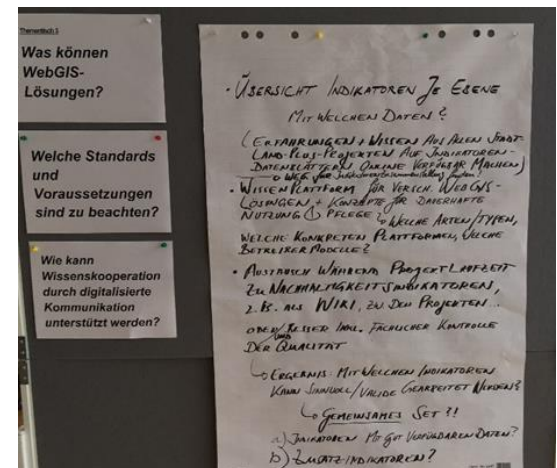 Thementisch 5
Was können
WebGIS-
Lösungen?
Welche Standards
und
Voraussetzungen
sind zu beachten?
Wie kann
Wissenskooperation
durch digitalisierte
Kommunikation
unterstützt werden?
• ÜBERSICHT INDIKATOREN JE EBENE
MIT WELCHEN DATEN?
(ERFAHRUNGEN + WISSEN AUS ALLEN STADT-
LAND-PLUS-PROJEKTEN AUF INDIKATOREN-
DATENBLÄTTERN ONLINE VERFÜGBAR MACHEN)
WEG für
• WISSENPLATTFORM FÜR VERSCH. WEBGIS-
LÖSUNGEN, + KONZEPTE FÜR DAUERHAFTE
NUTZUNG PFLEGE? WELCHE ARTEN/TYPEN,
WELCHE KONKRETEN PLATTFORMEN, WELCHE
BETREIBERMODELLE?
• AUSTAUSCH WÄHREND PROJEKTLAUFZEIT
ZU NACHHALTIGKEITSINDIKATOREN,
z.B. ALS WIKI, ZU DEN PROJEKTEN...
ODER/UND BESSER INKL. FACHLICHER KONTROLLE
DER QUALITÄT
ERGEBNIS: MIT WELCHEN INDIKATOREN
KANN SINNVOLL/VALIDE GEARBEITET WERDEN?
GEMEINSAMES SET?!
a) INDIKATOREN MIT GUT VERFÜGBAREN DATEN?
b) ZUSATZ-INDIKATOREN?